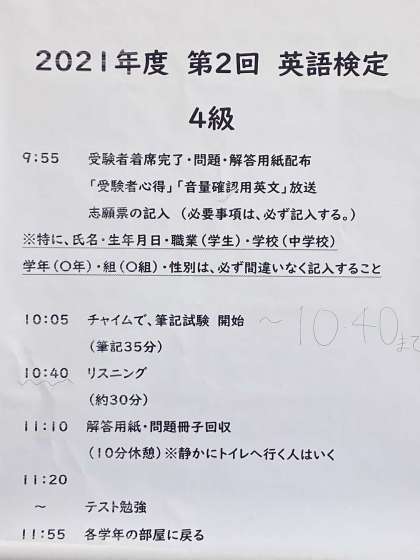 2021年度 第2回 英語検定
4級
9:55 受験者着席完了・問題・解答用紙配布
「受験者心得」「音量確認用英文」放送
志願票の記入 (必要事項は、必ず記入する。)
※特に、氏名・生年月日・職業(学生)・学校(中学校)
学年(〇年)・組(〇組)・性別は、必ず間違いなく記入すること
10:05 チャイムで、筆記試験 開始 ～10:40まで
(筆記35分)
10:40 リスニング
(約30分)
11:10 解答用紙・問題冊子回収
(10分休憩)※静かにトイレへ行く人はいく
11:20
～ テスト勉強
11:55 各学年の部屋に戻る